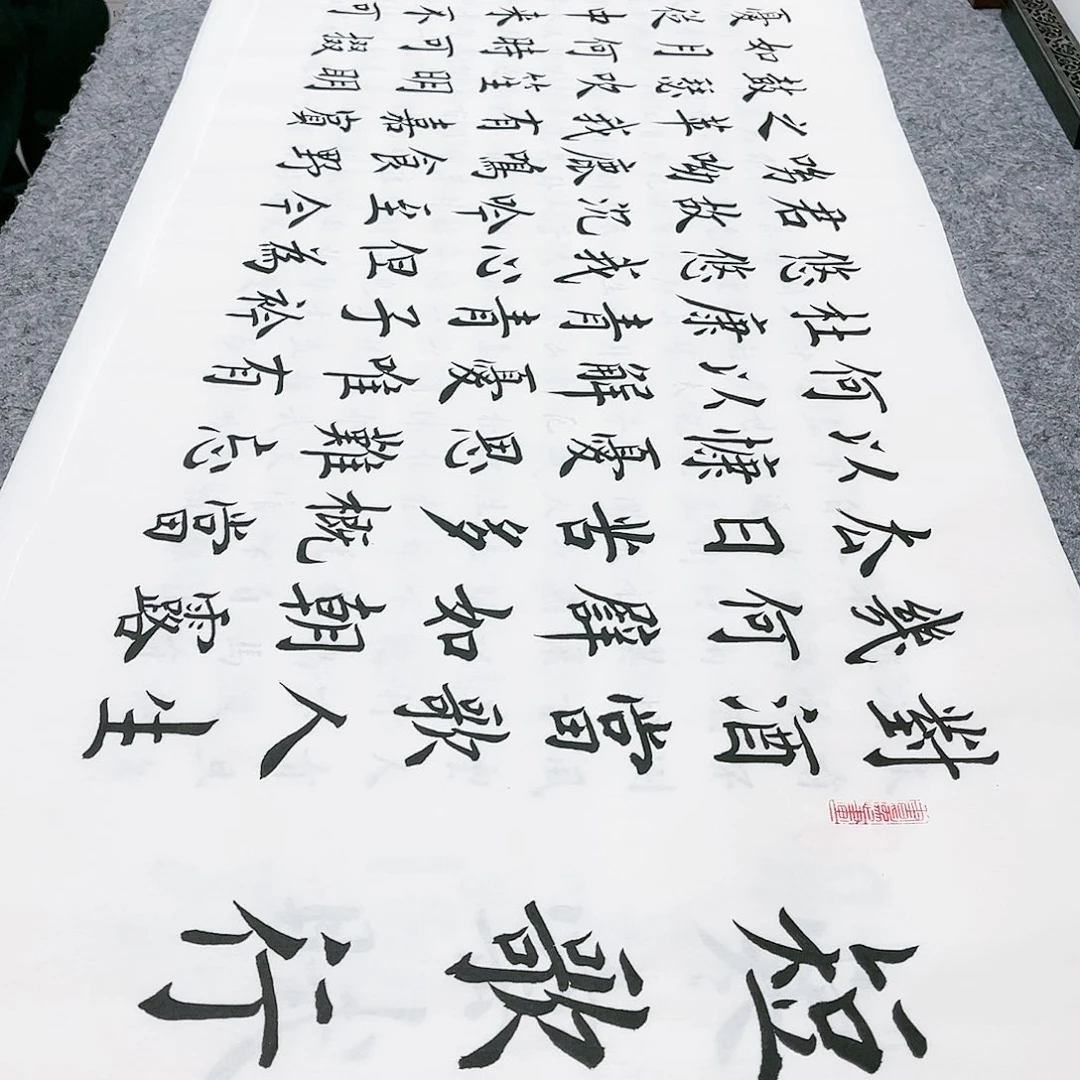 短歌行
對酒當歌人生
幾何譬如朝露
去日苦多慨當
以慷憂思難忘
何以解憂唯有
杜康青青子衿
悠悠我心但為
君故沉吟至今
呦呦鹿鳴食野
之苹我有嘉賓
鼓瑟吹笙明明
如月何時可掇
憂從中來不可